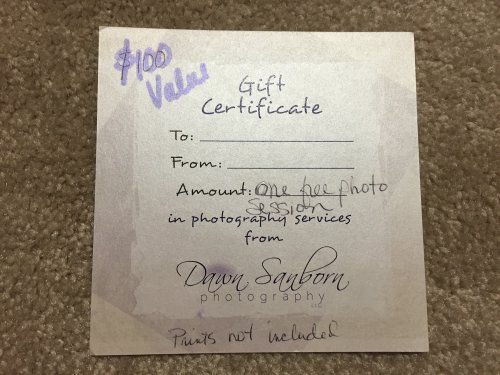 $100
Value
Gift
Certificate
To:
From:
Amount: One free photo
session
in photography services
from
Dawn Sanborn
photography
Prints not included